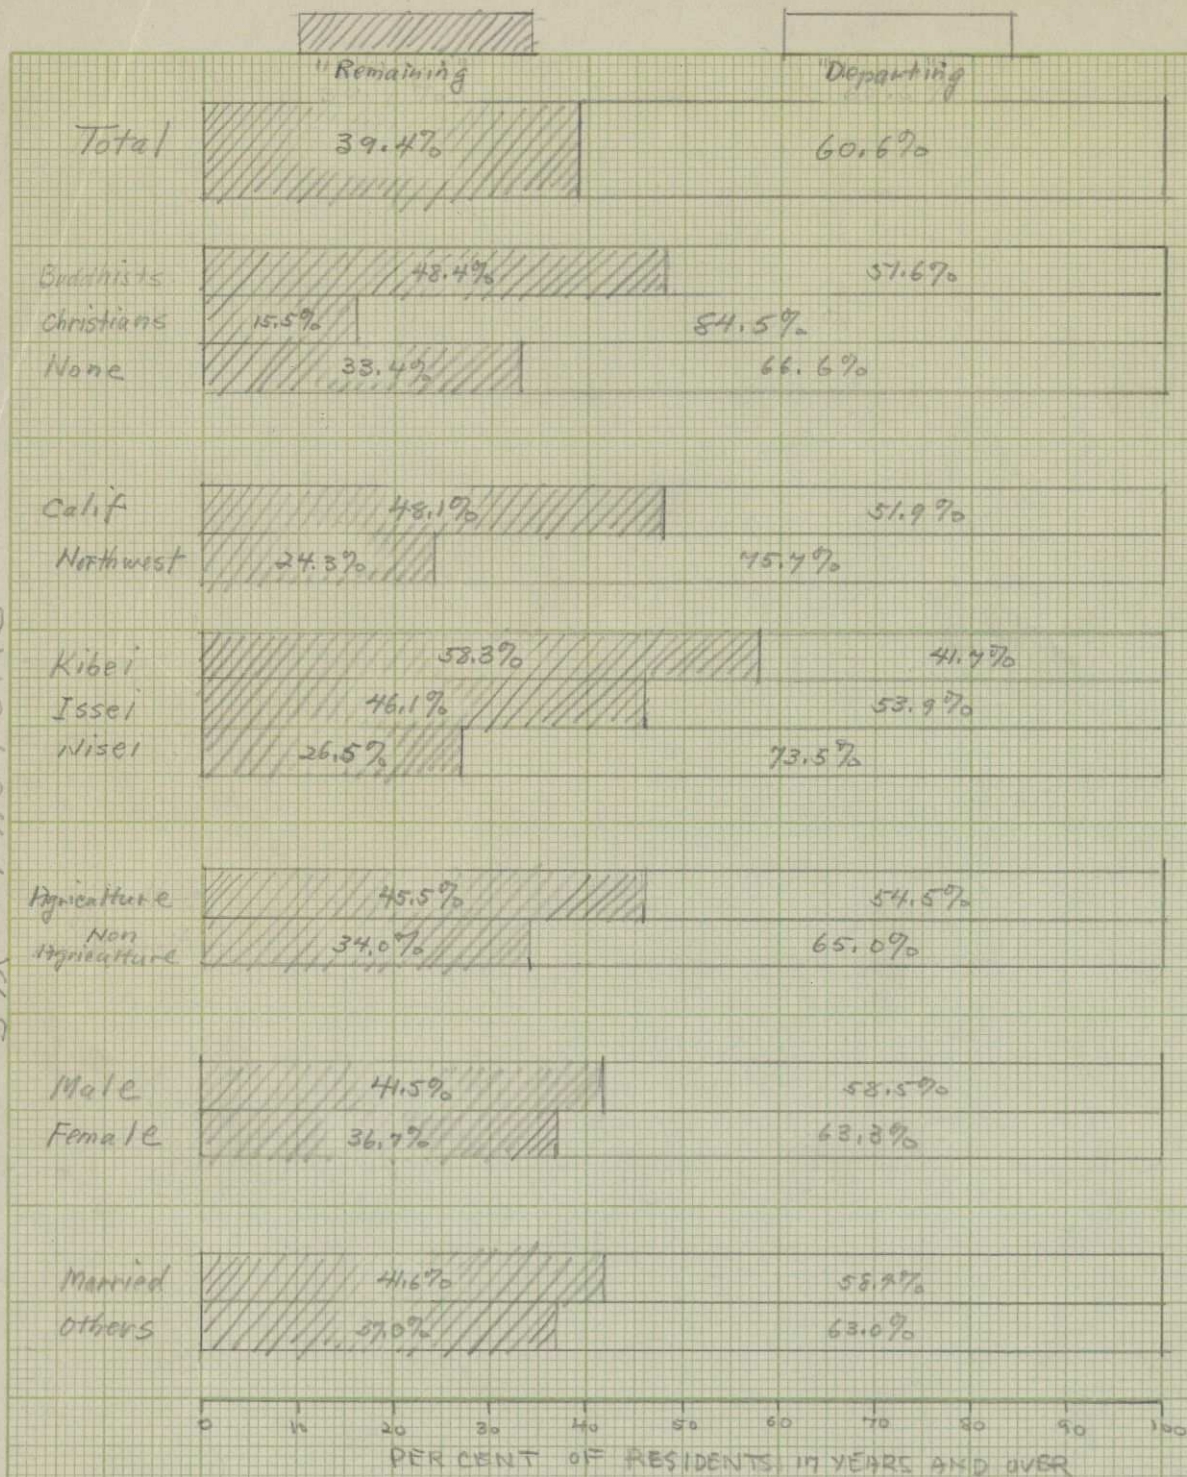 "Remaining "Departing
Total 39.4% 60.6%
Buddhists 48.4% 51.6%
Christians 15.5% 84.5%
None 33.4% 66.6%
Calif 48.1% 51.9%
Northwest 24.3% 75.7%
Kibei 58.3% 41.7%
Issei 46.1% 53.9%
Nisei 26.5% 73.5%
Agriculture 45.5% 54.5%
Non
Agriculture 34.0% 65.0%
Male 41.5% 58.5%
Female 36.7% 63.3%
Married 41.6%
Others 37.0% 63.0%
0 10 20 30 40 50 60 70 80 90 100
PER CENT OF RESIDENTS 17 YEARS AND OVER